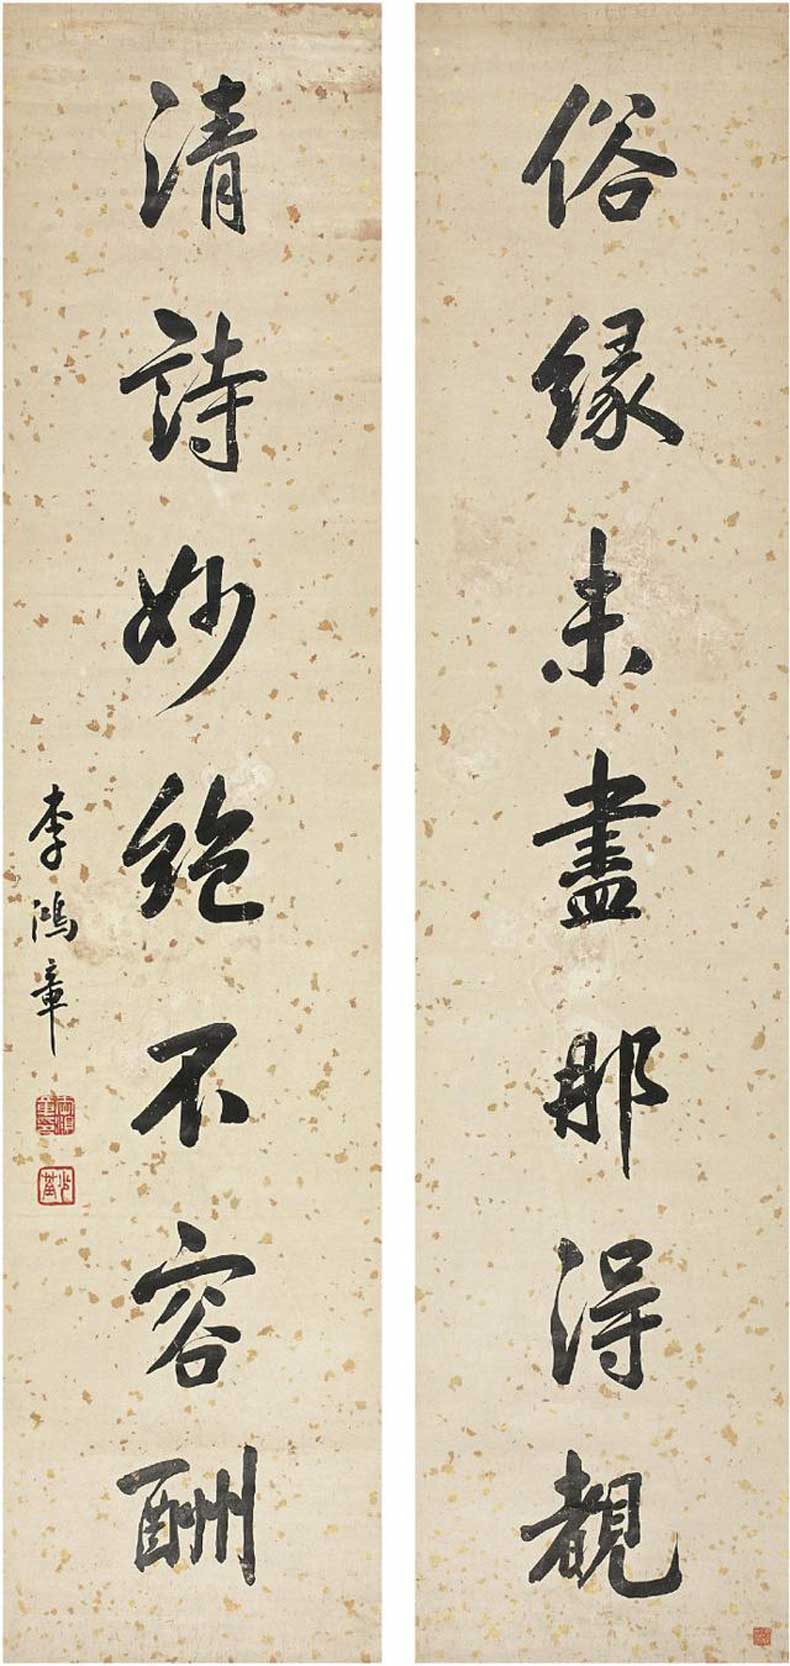 俗緣未盡那得覩
清詩妙絕不容酬
李鴻章